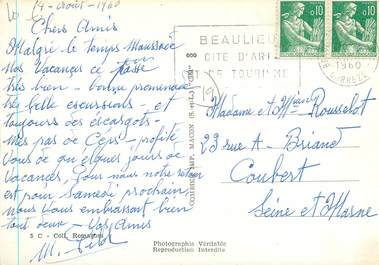 14 - août - 1960
Chers Amis
Malgré le Temps Maussade
Nos Vacances se passe
très bien - bonne promenade
très belle excursions - et
toujours des escargots -
Mes pas de Céps - profité
Vous de que ques jours de
Vacances, Pour nous notre retour
est pour samedi prochain,
nous Vous embrassont bien
tout deux - Vos Amis
M.
S C - Coll. Romanou
COMBIER IMP. MACON (S.-et-L.)
BEAULIEU
CITE D'ART
DE TOURISME
0,10
0,10
1960
CORREZE
Madame et Mr Rousselot
23 rue A - Briand
Coubert
Seine et Marne
Photographie Véritable
Reproduction Interdite